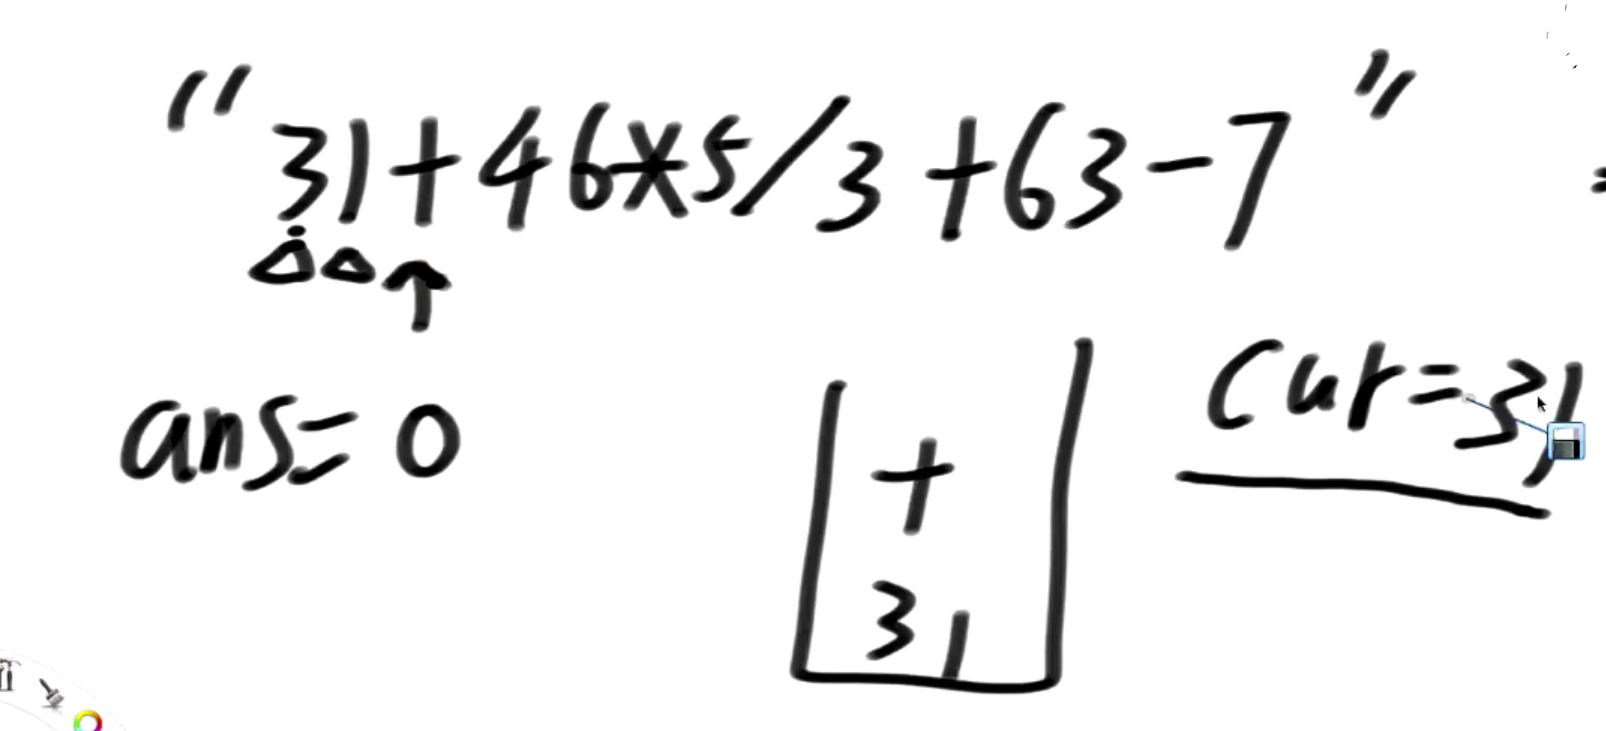 "31+46*5/3+63-7" =
ans=0
cur=31
+
31